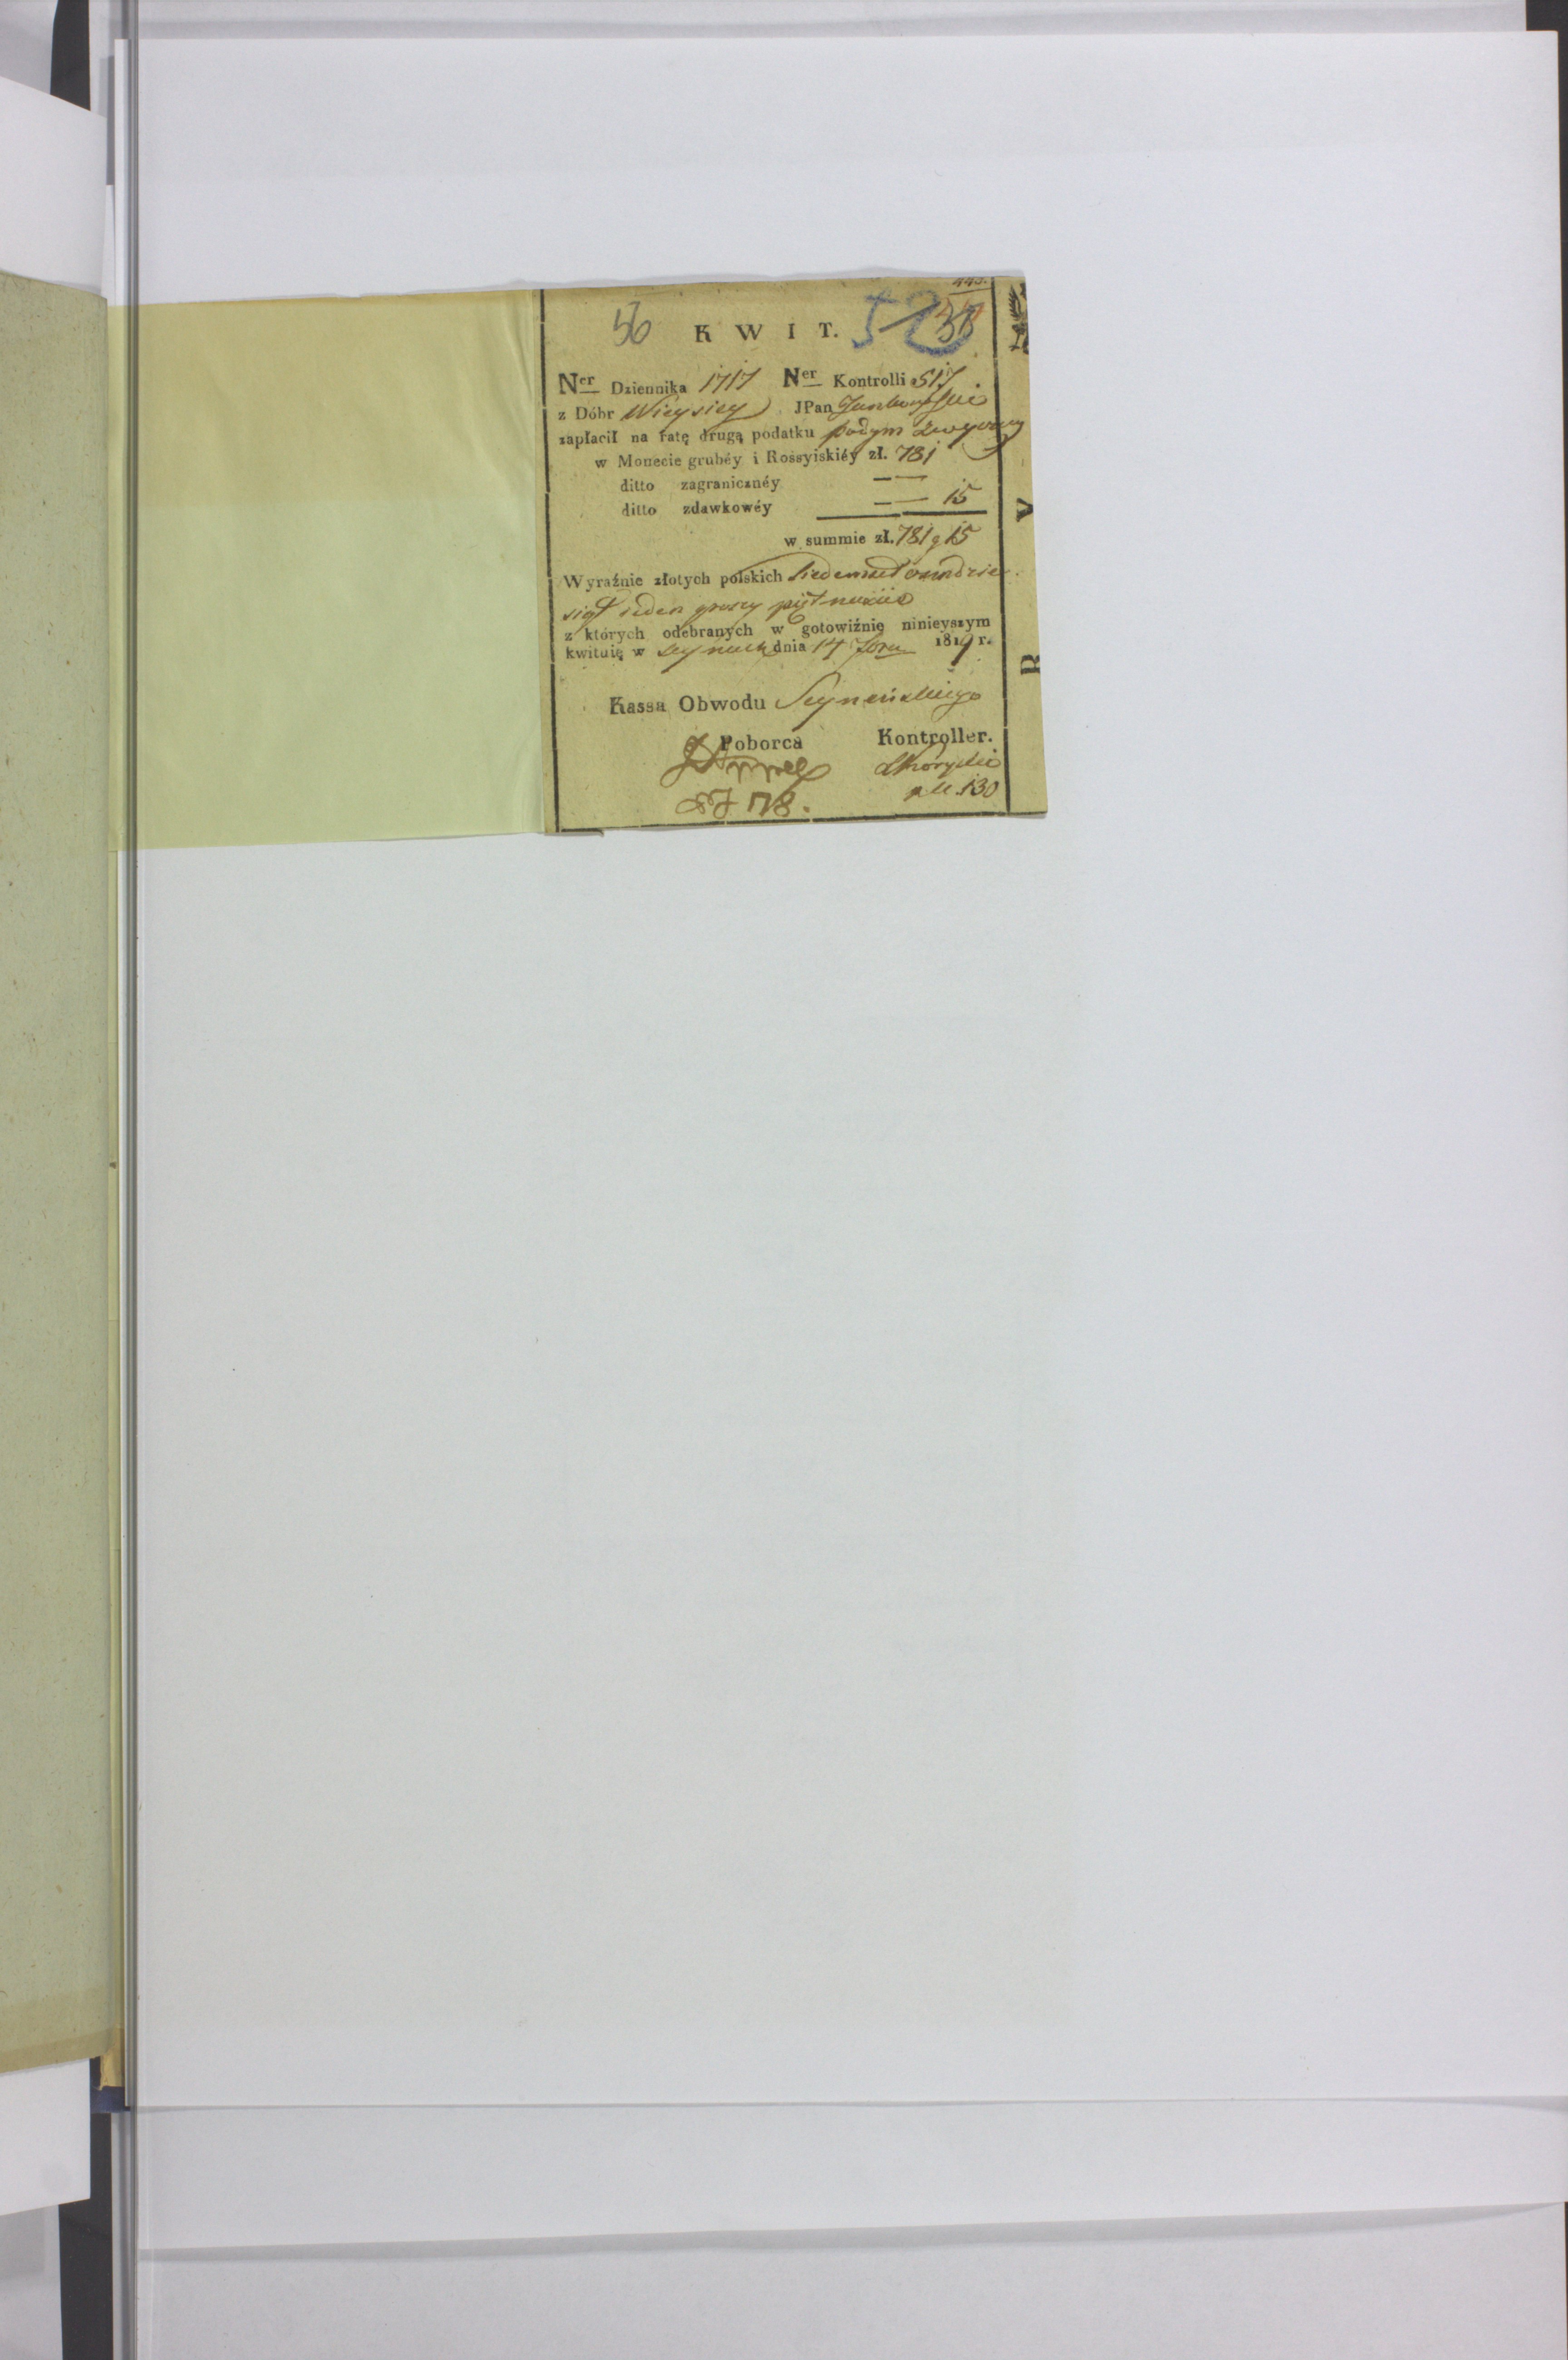 445.
56 KWIT. 52 38
Ner Dziennika 1717 Ner Kontrolli 517
z Dóbr Wieysiey JPan
zapłacił na ratę drugą podatku podym zwyczay
w Monecie grubéy i Rossyiskiéy zł. 781
ditto zagranicznéy — —
ditto zdawkowéy — — 15
w summie zł. 781 g 15
Wyraźnie złotych polskich Siedemset osmdzie
siąt ieden groszy piętnaście
z których odebranych w gotowiźnie ninieyszym
kwituię w Seynach dnia 14 1819 r.
Kassa Obwodu Seyneńskiego
Poborca Kontroller.
130
R V